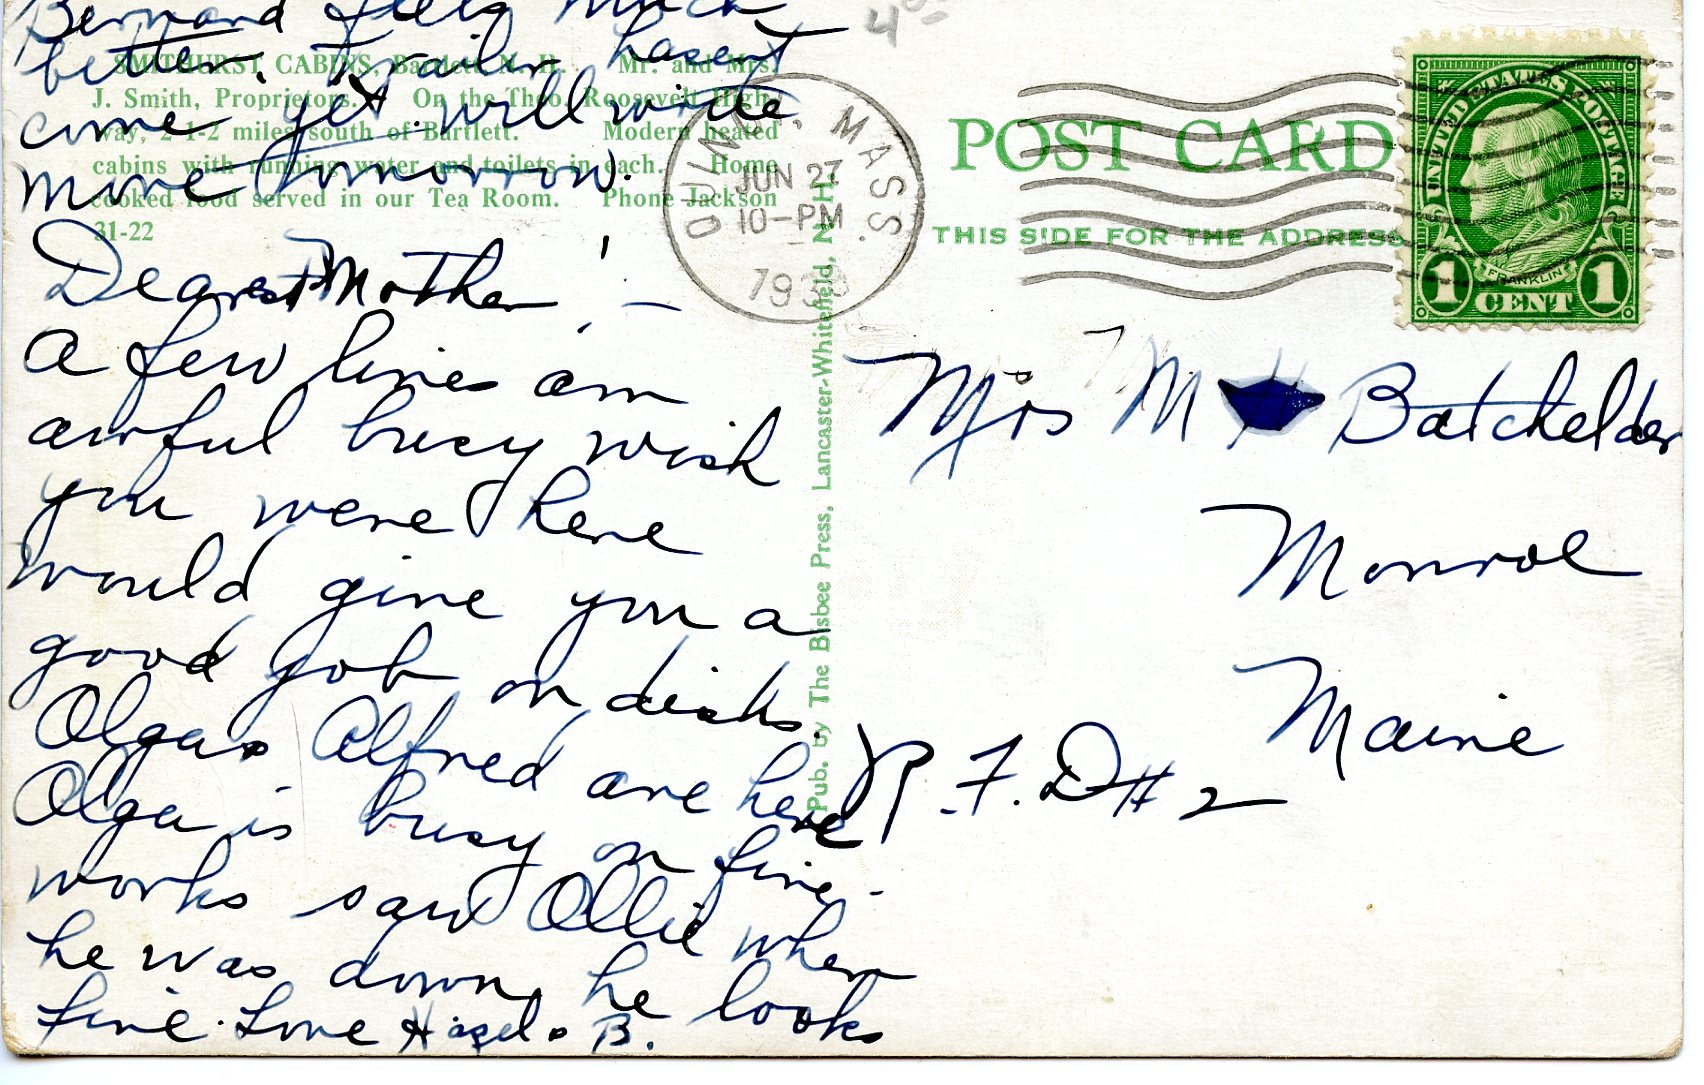 Bernard feels much
better. Trailer hasent
come yet will write
more tomorrow.
SMITHURST CABINS, Bartlett N. H. Mr. and Mrs.
J. Smith, Proprietors. On the Theo. Roosevelt High-
way, 2-1-2 miles south of Bartlett. Modern heated
cabins with running water and toilets in each. Home
cooked food served in our Tea Room. Phone Jackson
31-22
Dearest Mother! –
A few lines am
awful busy wish
you were here
would give you a
good job on dishs.
Olga & Alfred are here
Olga is busy on fire-
works saw Ollie when
he was down, he looks
fine. Love Hazel & B.
Pub. by The Bisbee Press, Lancaster-Whitefield, N. H.
QUINCY, MASS.
JUN 27
10-PM
POST CARD
THIS SIDE FOR THE ADDRESS
UNITED STATES POSTAGE
FRANKLIN
1 CENT 1
Mrs M Batchelder
Monroe
Maine
R.F.D # 2